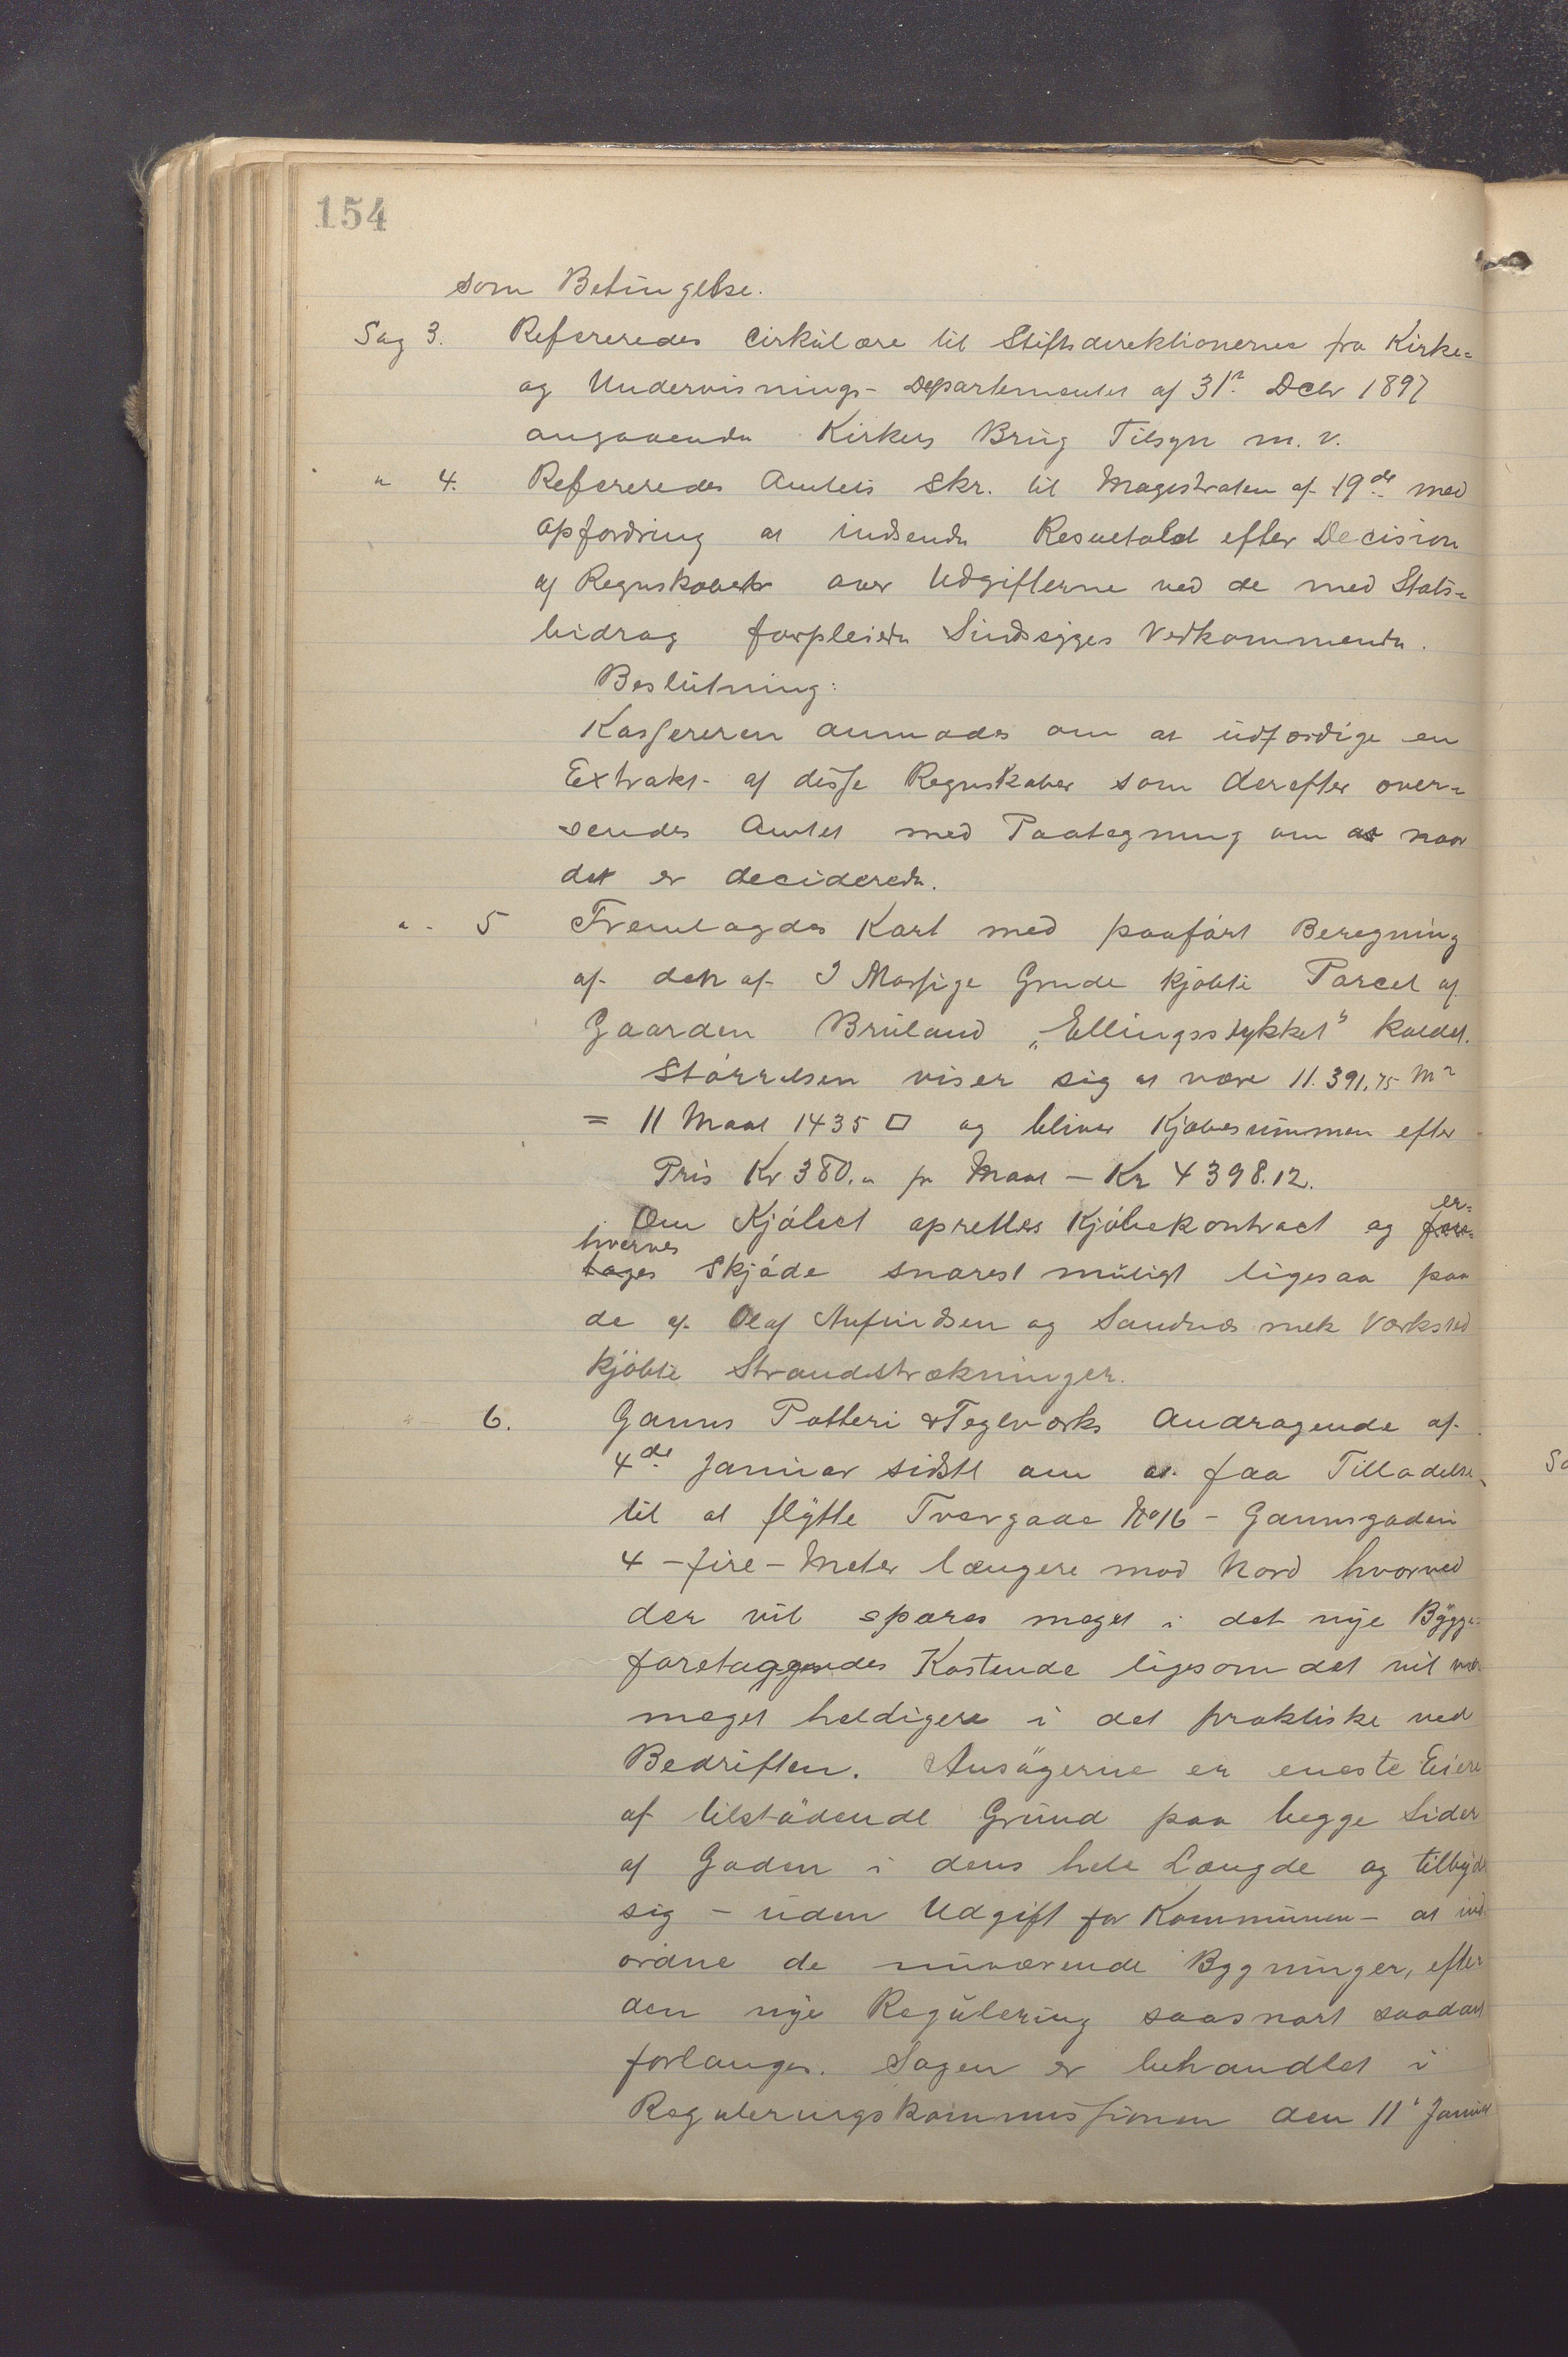 154
som Betingelse.
Sag 3. Refereredes Cirkulære til Stiftsdirektionerne fra Kirke=
og Undervisnings- Departementet af 31te Dcbr 1897
angaaende Kirkers Brug Tilsyn m. v.
" 4. Refereredes Amtets Skr. til Magistraten af 19de med
Opfordring at indsende Resultatet efter Decision
af Regnskabet over Udgifterne ved de med Stats=
bidrag forpleiede Sindsyges Vedkommende.
Beslutning:
Kassereren anmodes om at udfærdige en
Extrakt af disse Regnskaber som derefter over=
sendes Amtet med Paategning om at naar
det er deciderede.
" - 5 Fremlagdes Kart med paaført Beregning
af den af I Massige Grude kjøbte Parcel af
Gaarden Bruland „Ellingsstykket" kaldet.
Størrelsen viser sig at være 11.391,75 M²
= 11 Maal 1435 □ og bliver Kjøbesummen efter
Pris Kr 380." pr Maal – Kr 4398.12.
Om Kjøbet oprettes Kjøbekontract og er=
hverves Skjøde snarest muligt ligesaa paa
de af Olaf Aufindsen og Sandnæs mek Værksted
kjøbte Strandstrækninger.
" 6. Ganns Potteri & Teglværks Andragende af
4de Januar sidstl om at faa Tilladelse
til at flytte Tværgade No 16 – Gannsgaden
4 – fire – Meter længere mod Nord hvorved
der vil spares meget i det nye Bygge-
foretaggendes Kostende ligesom det vil være
meget heldigere i det praktiske ved
Bedriften. Ansøgerne er eneste Eiere
af tilstødende Grund paa begge Sider
af Gaden i dens hele Længde og tilbyde
sig – uden Udgift for Kommunen – at ind-
ordne de nuværende Bygninger, efter
den nye Regulering saasnart saadant
forlanges. Sagen er behandlet i
Reguleringskommissionen den 11' Januar